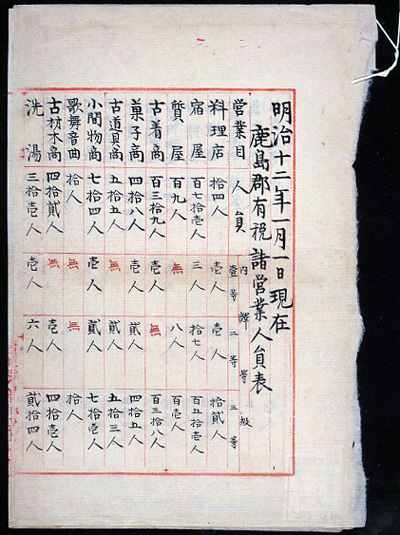 明治十二年一月一日現在
鹿島郡有税諸営業人員表
営業目 人員 内訳等級 壹等 二等 三等
料理店 拾四人 壱人 壱人 拾貳人
宿屋 百七拾壱人 三人 拾七人 百五拾壱人
質屋 百九人 無 八人 百壱人
古着商 百三拾九人 壱人 無 百三拾八人
菓子商 四拾八人 壱人 貳人 四拾五人
古道具商 五拾五人 無 貳人 五拾三人
小間物商 七拾四人 壱人 貳人 七拾壱人
歌舞音曲 拾人 無 無 拾人
古材木商 四拾貳人 無 壱人 四拾壱人
洗湯 三拾壱人 壱人 六人 貳拾四人